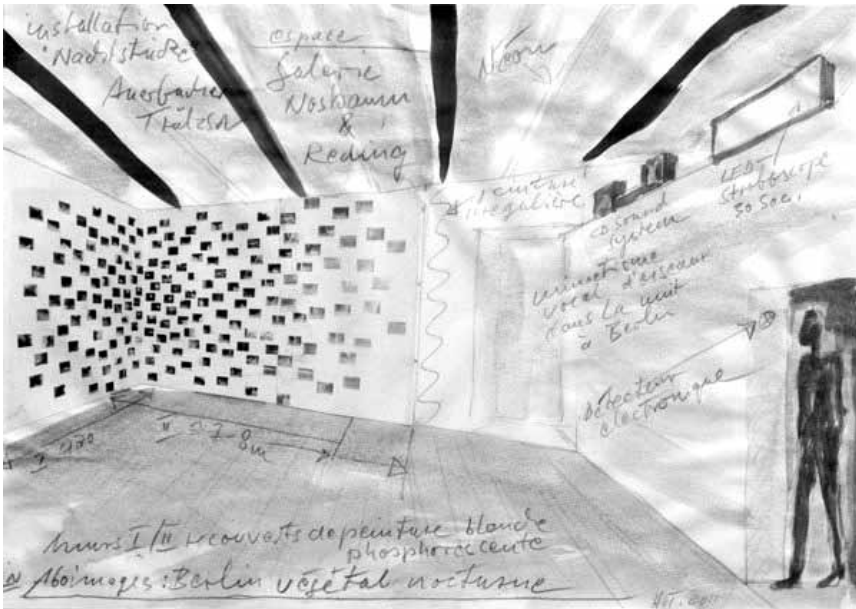 installation
"Nachtstücke"
Auerbacher
Trätzsch
espace
Galerie
Nosbaum
&
Reding
Néon
peinture
irrégulière
CD sound
system
LED-
stroboscope
30 Sec.
mimétisme
vocal d'oiseaux
dans la nuit
à Berlin
Détecteur
électronique
I
II 8m
murs I/II recouverts de peinture blanche
phosphorescente
160 images: Berlin végétal nocturne